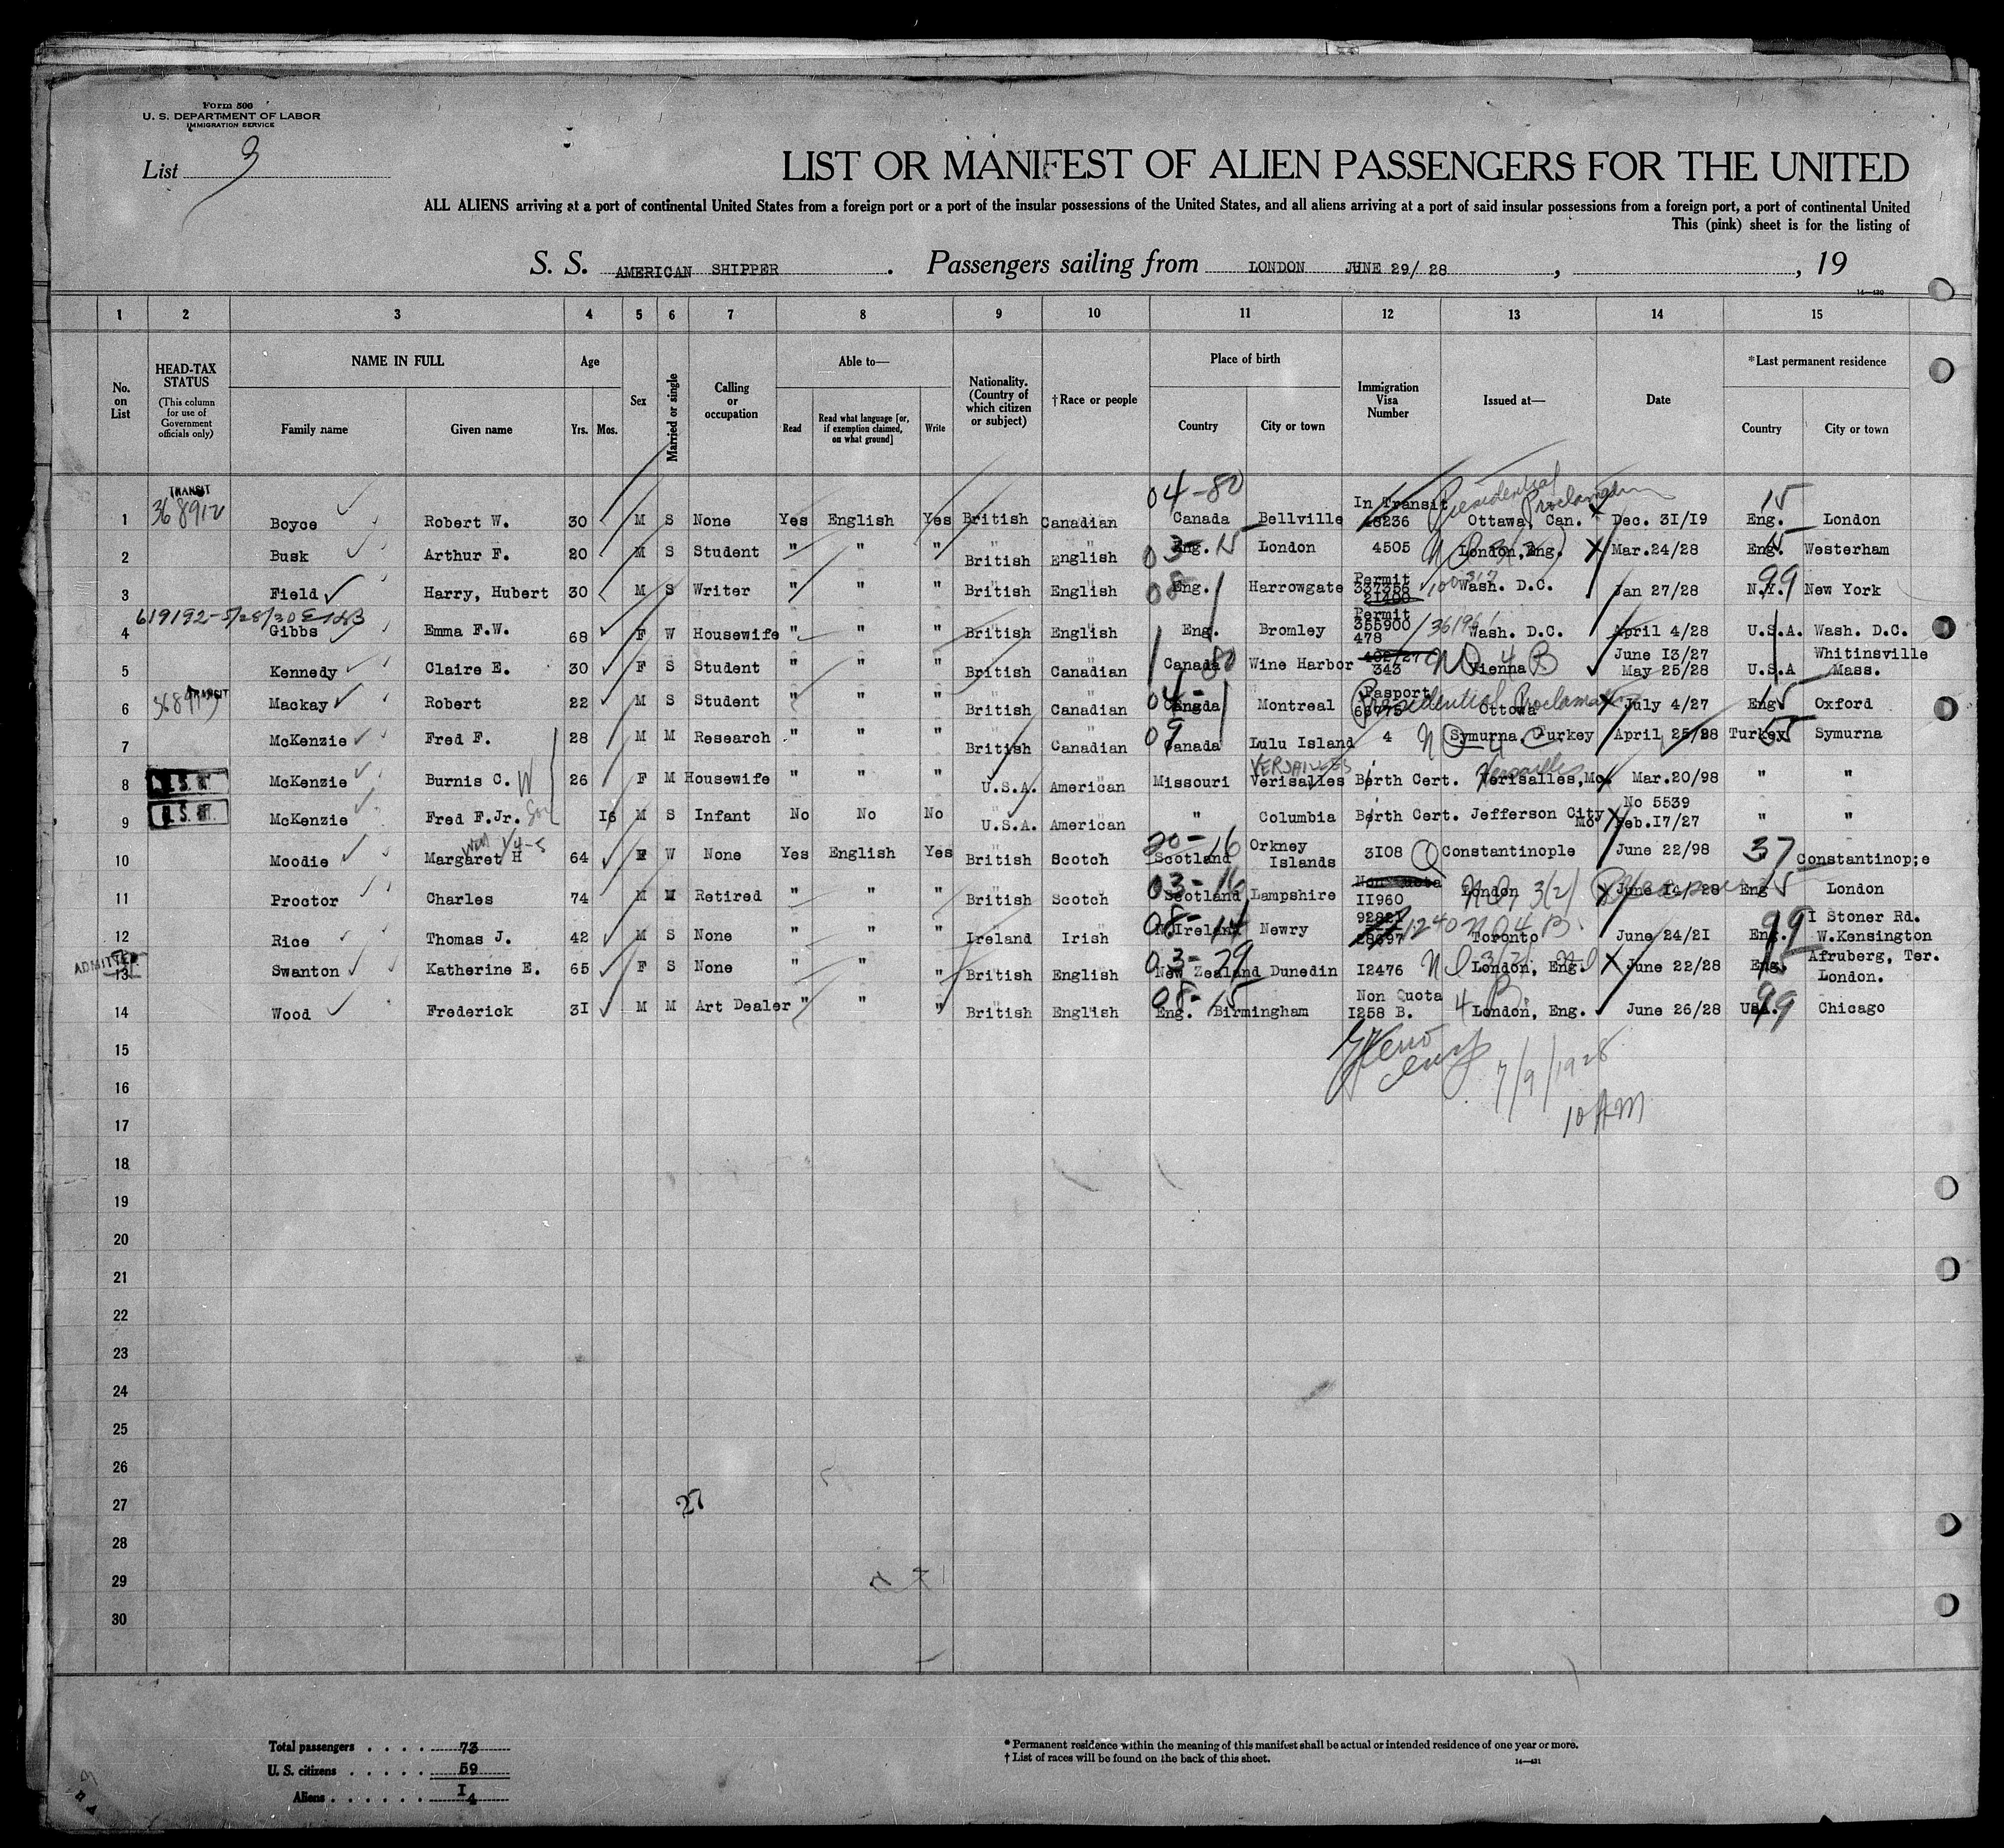 Form 500
U. S. DEPARTMENT OF LABOR
IMMIGRATION SERVICE
List 3
LIST OR MANIFEST OF ALIEN PASSENGERS FOR THE UNITED
ALL ALIENS arriving at a port of continental United States from a foreign port or a port of the insular possessions of the United States, and all aliens arriving at a port of said insular possessions from a foreign port, a port of continental United
This (pink) sheet is for the listing of
S. S. AMERICAN SHIPPER . Passengers sailing from LONDON JUNE 29/ 28 , , 19
1 2 3 4 5 6 7 8 9 10 11 12 13 14 15
No. on List
HEAD-TAX STATUS
(This column for use of Government officials only)
NAME IN FULL
Family name Given name
Age
Yrs. Mos.
Sex
Married or single
Calling or occupation
Able to—
Read
Read what language [or, if exemption claimed, on what ground]
Write
Nationality. (Country of which citizen or subject)
†Race or people
Place of birth
Country City or town
Immigration Visa Number
Issued at—
Date
*Last permanent residence
Country City or town
TRANSIT 04-80 In Transit Presidential Proclamation 15
1 Boyce Robert W. 30 M S None Yes English Yes British Canadian Canada Bellville 48236 Ottawa, Can. Dec. 31/19 Eng. London
2 Busk Arthur F. 20 M S Student " " " British English Eng. 15 London 4505 London, Eng. Mar.24/28 Eng. Westerham
Permit
3 Field Harry, Hubert 30 M S Writer " " " British English 08 Eng. Harrowgate 337356 Wash. D.C. Jan 27/28 N.Y. 99 New York
619192-5/28/30
Permit
355900
4 Gibbs Emma F.W. 68 F W Housewife " " " British English Eng. Bromley 478 Wash. D.C. April 4/28 U.S.A. Wash. D.C.
June 13/27 Whitinsville
5 Kennedy Claire E. 30 F S Student " " " British Canadian Canada 80 Wine Harbor 343 Vienna May 25/28 U.S.A Mass.
TRANSIT Pasport Presidential
6 Mackay Robert 22 M S Student " " " British Canadian Canada Montreal Ottawa July 4/27 Eng 15 Oxford
7 McKenzie Fred F. 28 M M Research " " " British Canadian 09 Canada Lulu Island 4 Symurna, Turkey April 25/28 Turkey Symurna
VERSAILLES Versailles
8 McKenzie Burnis C. W 26 F M Housewife " " " U.S.A. American Missouri Verisalles Berth Cert. Verisalles,Mo. Mar.20/98 " "
No 5539
9 McKenzie Fred F.Jr. Son 16 M S Infant No No No U.S.A. American " Columbia Berth Cert. Jefferson City Mo Feb.17/27 " "
20-16
10 Moodie Margaret H 64 F W None Yes English Yes British Scotch Scotland Orkney Islands 3108 Constantinople June 22/98 37 Constantinop;e
03-16 Non Quota
11 Proctor Charles 74 M M Retired " " " British Scotch Scotland Lampshire 11960 London 3(2) June 14/28 Eng London
92821 1 Stoner Rd.
12 Rice Thomas J. 42 M S None " " " Ireland Irish N.Ireland Newry 28697 Toronto June 24/21 Eng. W.Kensington
ADMITTED 03-29 Afruberg, Ter.
13 Swanton Katherine E. 65 F S None " " " British English New Zealand Dunedin 12476 London, Eng. June 22/28 Eng. London.
08-15 Non Quota 4 B.
14 Wood Frederick 31 M M Art Dealer " " " British English Eng. Birmingham 1258 B. London, Eng. June 26/28 USA. 99 Chicago
7/9/1928
10 AM
15
16
17
18
19
20
21
22
23
24
25
26
27
27
28
29
30
Total passengers . . . . 73
U. S. citizens . . . . . 59
Aliens . . . . . . 14
* Permanent residence within the meaning of this manifest shall be actual or intended residence of one year or more.
† List of races will be found on the back of this sheet.
14—431